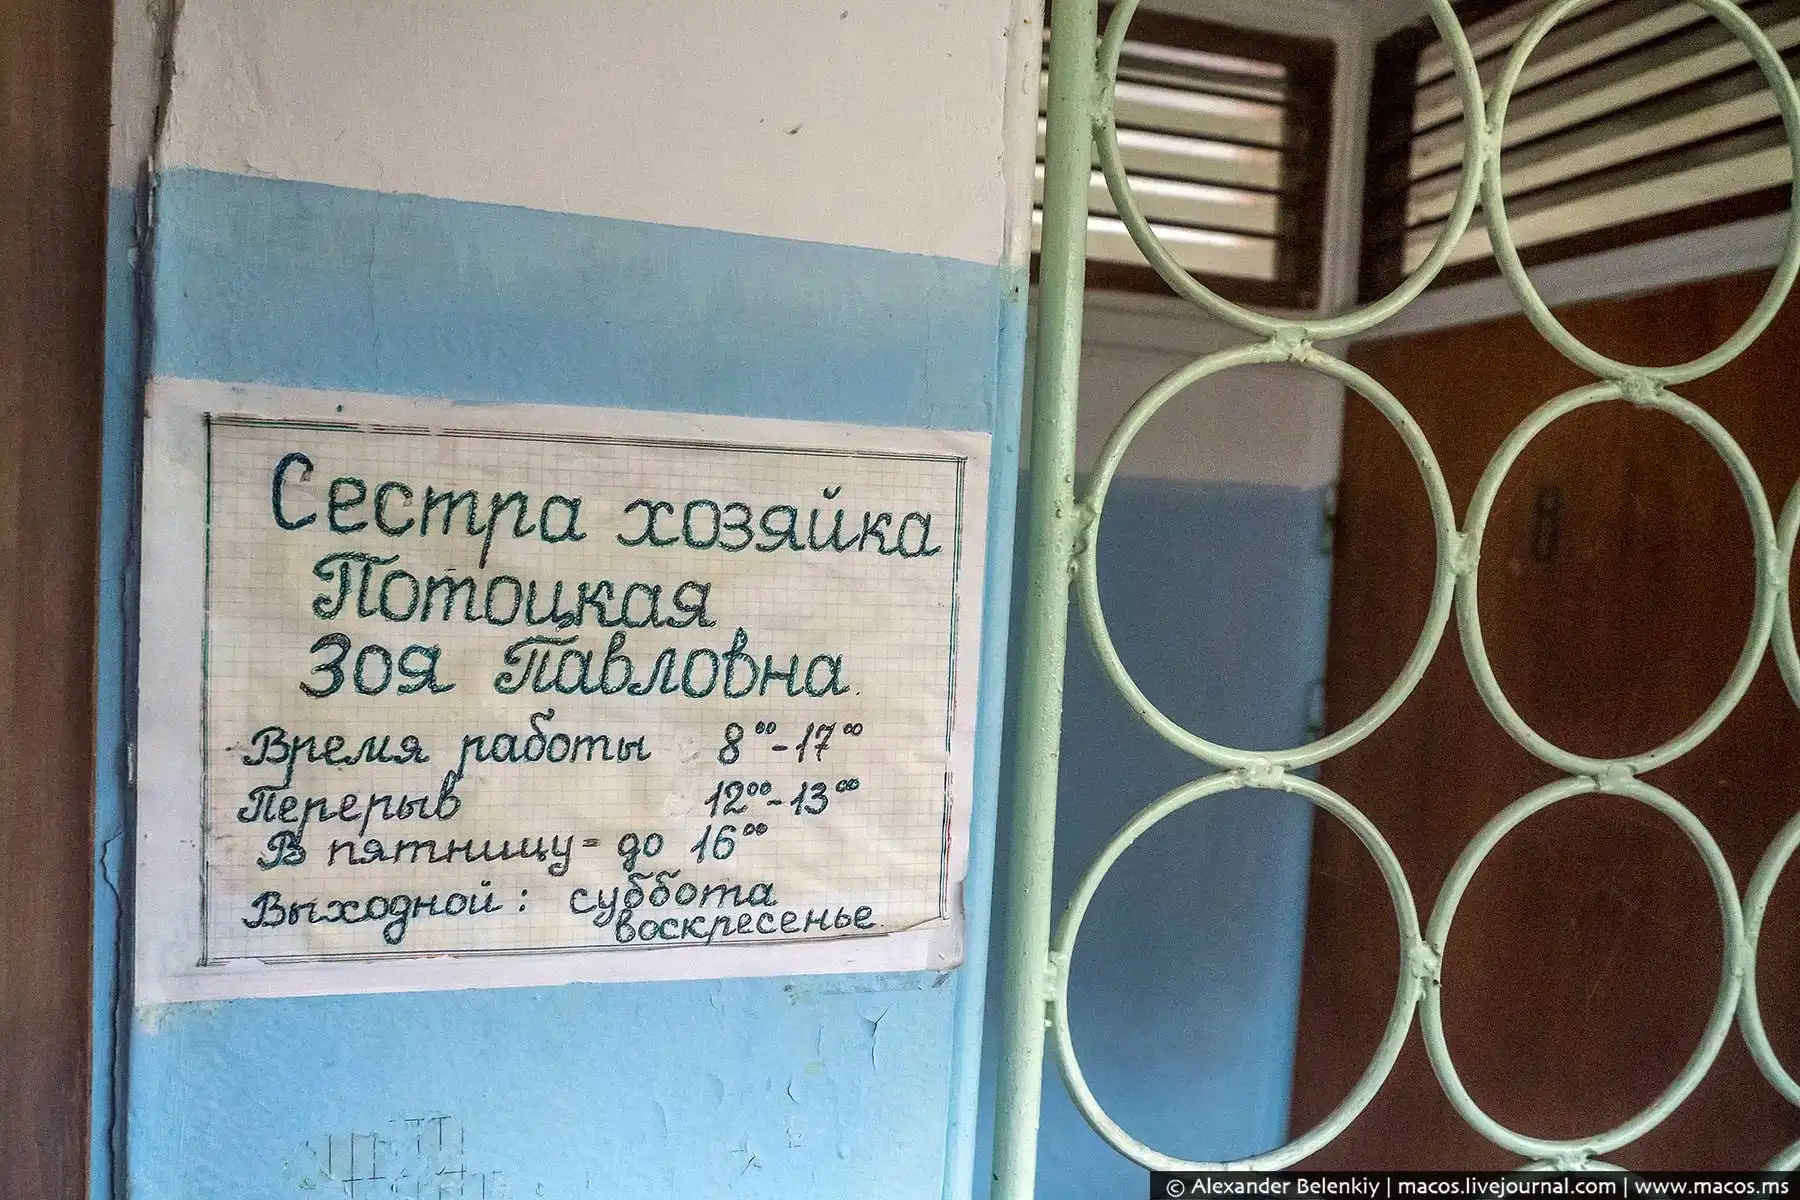 Сестра хозяйка
Потоцкая
Зоя Павловна.
Время работы 8⁰⁰-17⁰⁰
Перерыв 12⁰⁰-13⁰⁰
В пятницу - до 16⁰⁰
Выходной: суббота
воскресенье.
© Alexander Belenkiy | macos.livejournal.com | www.macos.ms